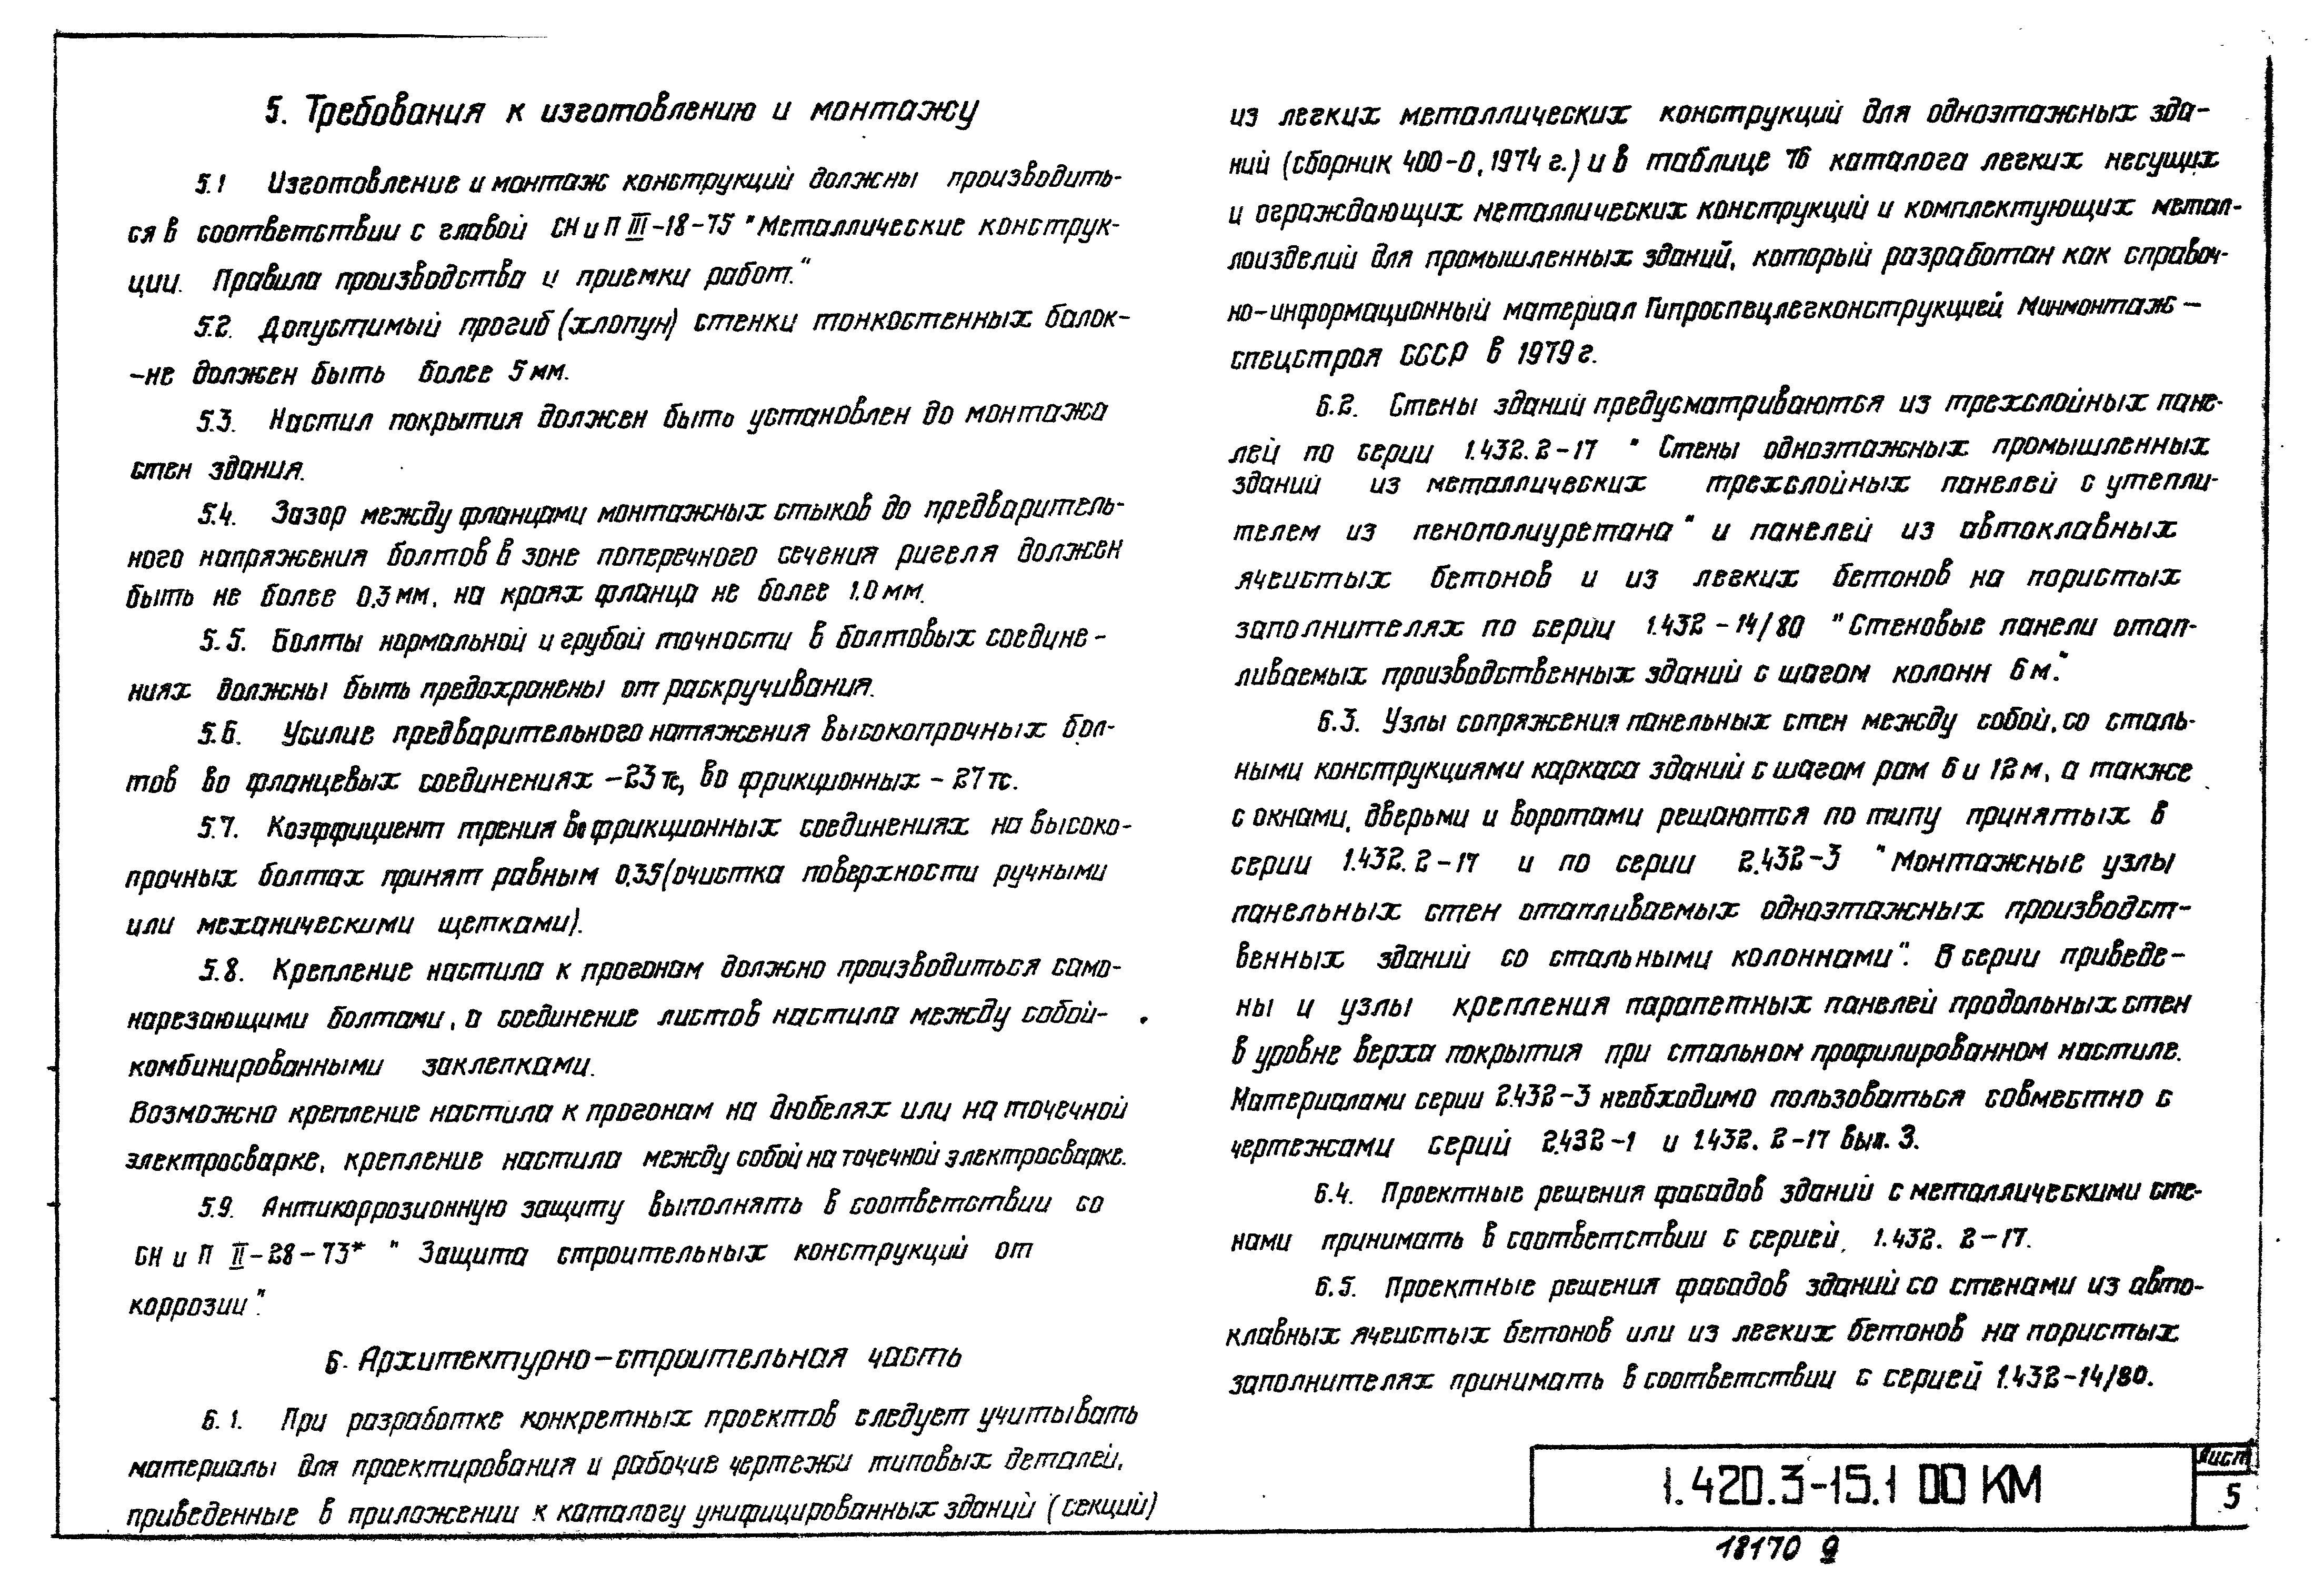 5. Требования к изготовлению и монтажу
5.1 Изготовление и монтаж конструкций должны производить-
ся в соответствии с главой СН и П III-18-75 "Металлические конструк-
ции. Правила производства и приемки работ."
5.2. Допустимый прогиб (хлопун) стенки тонкостенных балок-
-не должен быть более 5 мм.
5.3. Настил покрытия должен быть установлен до монтажа
стен здания.
5.4. Зазор между фланцами монтажных стыков до предваритель-
ного напряжения болтов в зоне поперечного сечения ригеля должен
быть не более 0,3 мм, на краях фланца не более 1.0 мм.
5.5. Болты нормальной и грубой точности в болтовых соедине-
ниях должны быть предохранены от раскручивания.
5.6. Усилие предварительного натяжения высокопрочных бол-
тов во фланцевых соединениях -23 тс, во фрикционных - 27 тс.
5.7. Коэффициент трения во фрикционных соединениях на высоко-
прочных болтах принят равным 0,35 (очистка поверхности ручными
или механическими щетками).
5.8. Крепление настила к прогонам должно производиться само-
нарезающими болтами, а соединение листов настила между собой-
комбинированными заклепками.
Возможно крепление настила к прогонам на дюбелях или на точечной
электросварке, крепление настила между собой на точечной электросварке.
5.9. Антикоррозионную защиту выполнять в соответствии со
СН и П II-28-73* "Защита строительных конструкций от
коррозии".
6. Архитектурно-строительная часть
6.1. При разработке конкретных проектов следует учитывать
материалы для проектирования и рабочие чертежи типовых деталей,
приведенные в приложении к каталогу унифицированных зданий (секций)
из легких металлических конструкций для одноэтажных зда-
ний (сборник 400-0, 1974 г.) и в таблице 76 каталога легких несущих
и ограждающих металлических конструкций и комплектующих метал-
лоизделий для промышленных зданий, который разработан как справоч-
но-информационный материал Гипроспецлегконструкцией Минмонтаж-
спецстроя СССР в 1979 г.
6.2. Стены зданий предусматриваются из трехслойных пане-
лей по серии 1.432.2-17 "Стены одноэтажных промышленных
зданий из металлических трехслойных панелей с утепли-
телем из пенополиуретана" и панелей из автоклавных
ячеистых бетонов и из легких бетонов на пористых
заполнителях по серии 1.432-14/80 "Стеновые панели отап-
ливаемых производственных зданий с шагом колонн 6 м."
6.3. Узлы сопряжения панельных стен между собой, со сталь-
ными конструкциями каркаса зданий с шагом рам 6 и 12 м, а также
с окнами, дверьми и воротами решаются по типу принятых в
серии 1.432.2-17 и по серии 2.432-3 "Монтажные узлы
панельных стен отапливаемых одноэтажных производст-
венных зданий со стальными колоннами". В серии приведе-
ны и узлы крепления парапетных панелей продольных стен
в уровне верха покрытия при стальном профилированном настиле.
Материалами серии 2.432-3 необходимо пользоваться совместно с
чертежами серий 2.432-1 и 1.432.2-17 вып. 3.
6.4. Проектные решения фасадов зданий с металлическими сте-
нами принимать в соответствии с серией, 1.432.2-17.
6.5. Проектные решения фасадов зданий со стенами из авто-
клавных ячеистых бетонов или из легких бетонов на пористых
заполнителях принимать в соответствии с серией 1.432-14/80.
1.420.3-15.1 00 КМ
Лист
5
18170 9